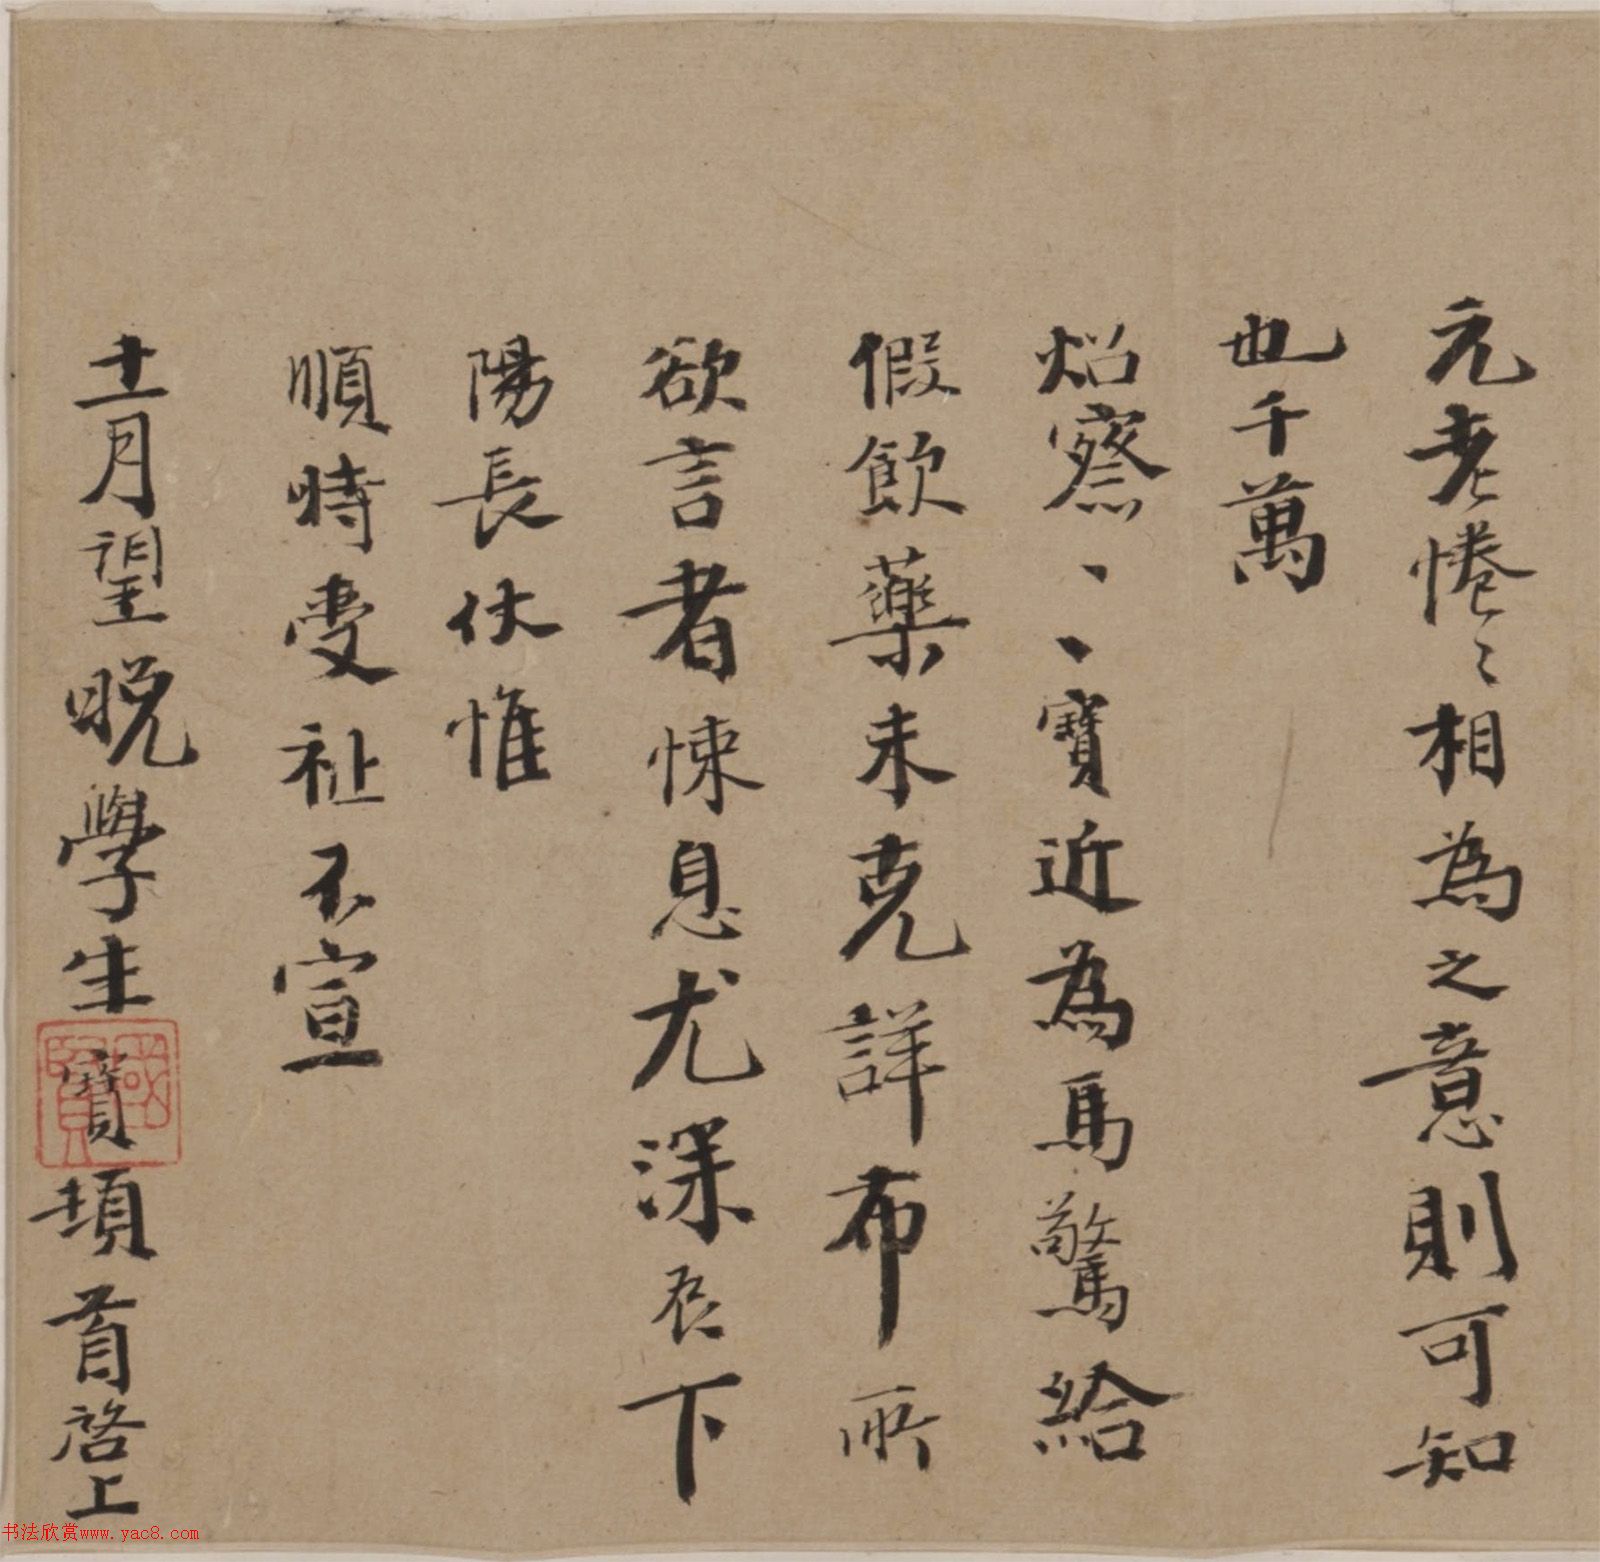 元老惓〻相為之意則可知
也千萬
炤察、、寶近為馬驚給
假飲藥未克詳布所
欲言者悚息尤深辰下
陽長伏惟
順時受祉不宣
十一月望晚學生寶頓首啓上
國賢
书法欣赏www.yac8.com